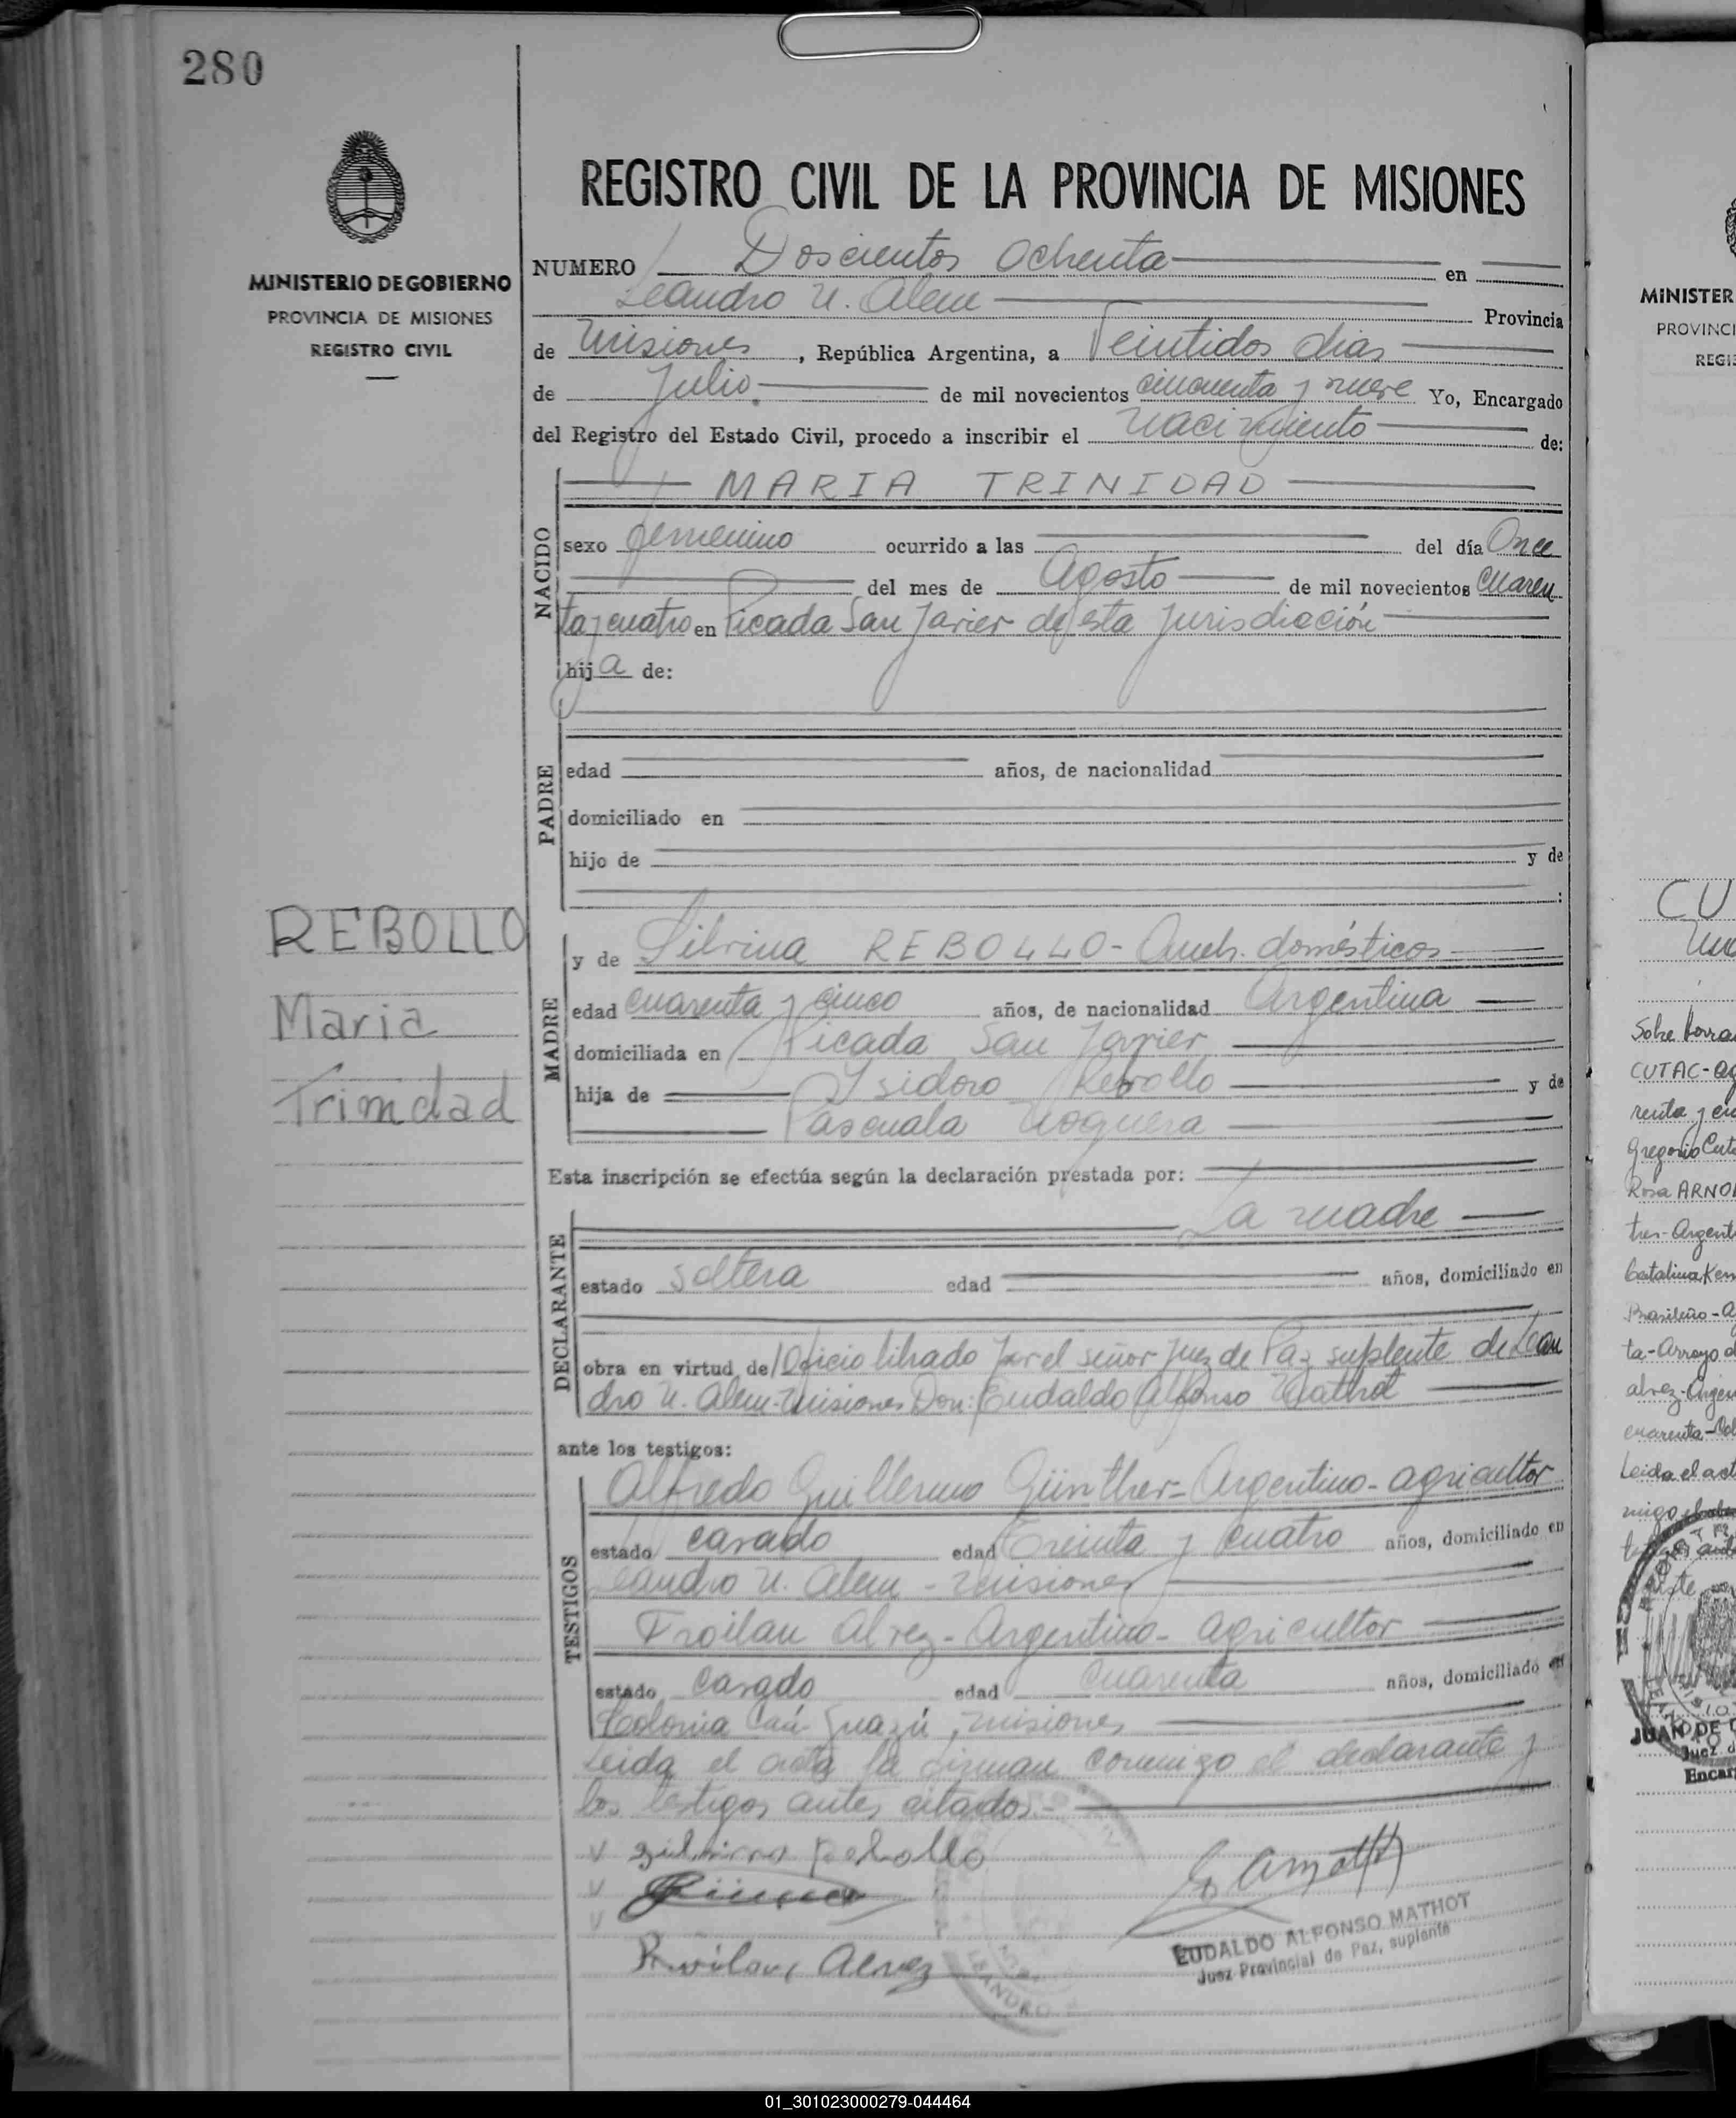 280
MINISTERIO DE GOBIERNO
PROVINCIA DE MISIONES
REGISTRO CIVIL
REBOLLO
Maria
Trinidad
REGISTRO CIVIL DE LA PROVINCIA DE MISIONES
NUMERO Doscientos Ochenta en
Leandro N. Alem Provincia
de Misiones, República Argentina, a Veintidos dias
de Julio. de mil novecientos cincuenta y nueve Yo, Encargado
del Registro del Estado Civil, procedo a inscribir el nacimiento de:
NACIDO
MARIA TRINIDAD
sexo femenino ocurrido a las del día Once
del mes de Agosto de mil novecientos cuaren
ta y cuatro en Picada San Javier de esta Jurisdicción
hija de:
PADRE
edad años, de nacionalidad
domiciliado en
hijo de y de
:
MADRE
y de Silvina REBOLLO - Queh. domésticos
edad cuarenta y cinco años, de nacionalidad Argentina
domiciliada en Picada San Javier
hija de Ysidoro Rebollo y de
Pascuala Noguera
Esta inscripción se efectúa según la declaración prestada por:
DECLARANTE
La madre
estado soltera edad años, domiciliado en
obra en virtud de Oficio librado por el señor Juez de Paz suplente de Lean
dro N. Alem-Misiones Don: Eudaldo Alfonso Mathot
ante los testigos:
TESTIGOS
Alfredo Guillermo Günther - Argentino - agricultor
estado casado edad Treinta y cuatro años, domiciliado en
Leandro N. Alem - Misiones
Froilan Alvez - Argentino - Agricultor
estado casado edad cuarenta años, domiciliado en
Colonia Caá-Guazú, Misiones
Leida el acta la firman conmigo el declarante y
los testigos antes citados.-
Rebollo
Froilan Alvez
EUDALDO ALFONSO MATHOT
Juez Provincial de Paz, suplente
MINISTER
PROVINCI
REGIS
CU
Sobre borra
CUTAC-ag
renta y ci
Gregorio Cuta
Rosa ARNO
tres-Argent
Catalina Ken
Brasileño-a
ta-Arroyo d
alvez-Argen
cuarenta-Col
Leida el act
migo
JUAN DE
Juez d
Encar
01_301023000279-044464